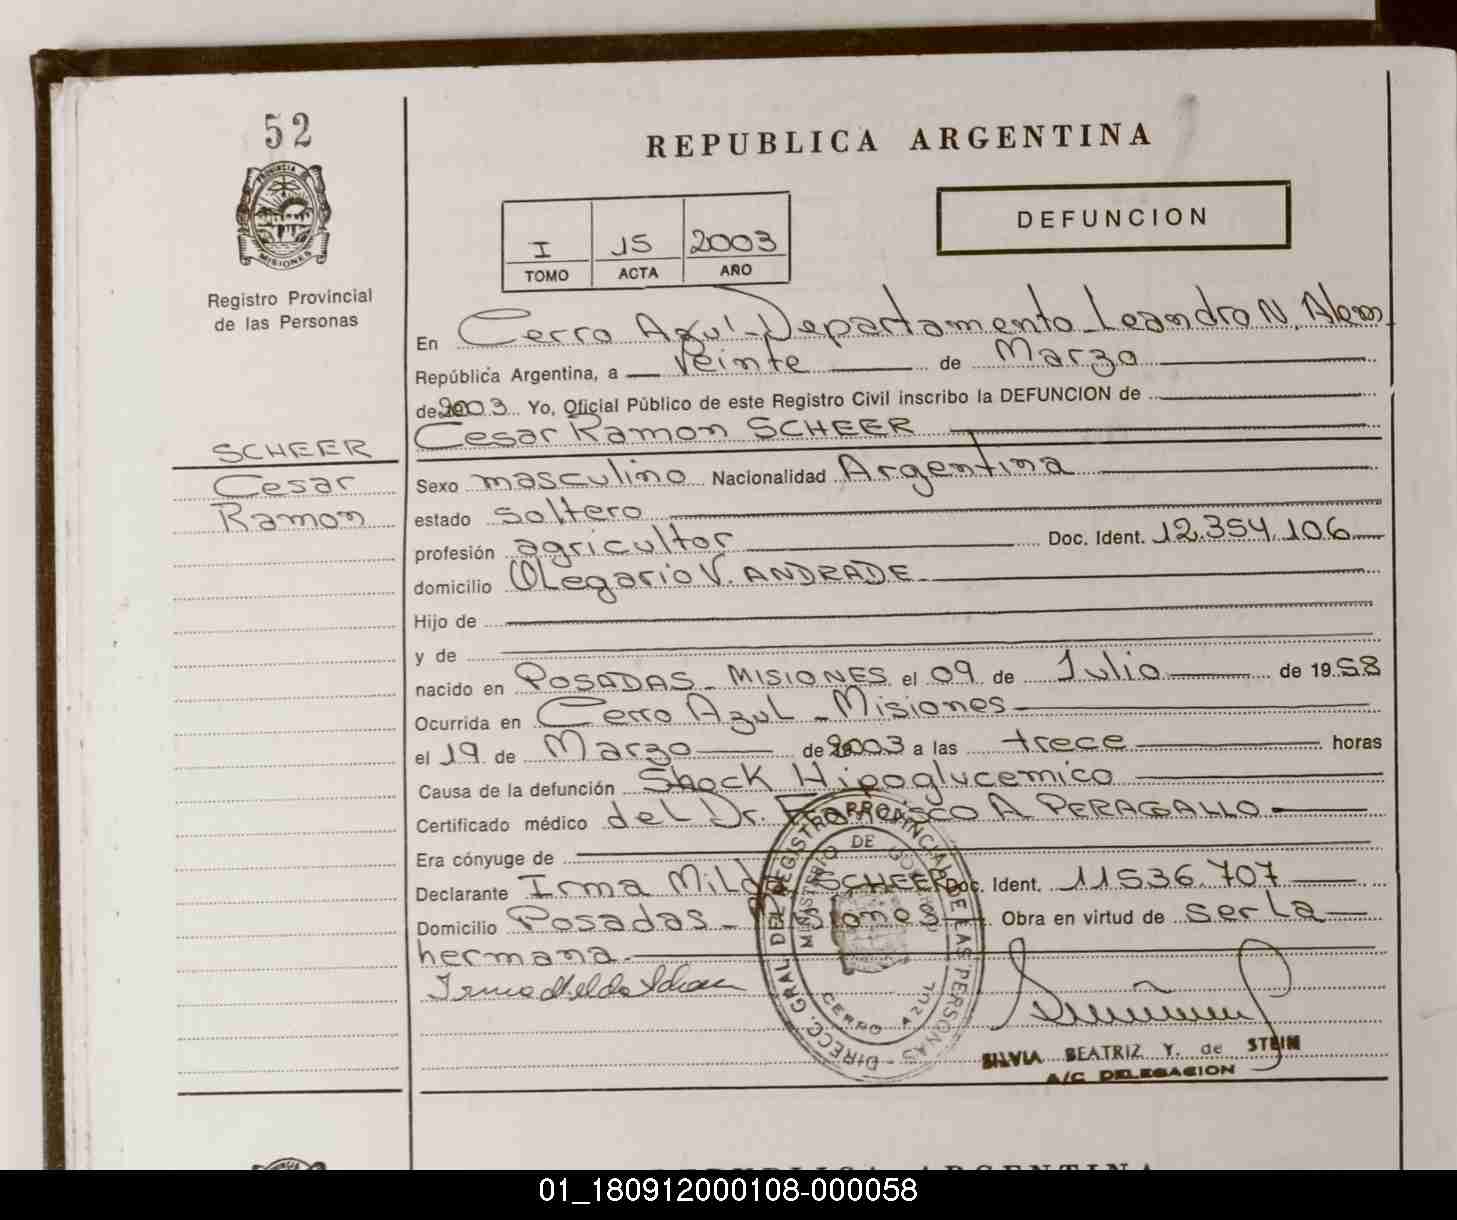 52
PROVINCIA DE
MISIONES
Registro Provincial
de las Personas
SCHEER
Cesar
Ramon
REPUBLICA ARGENTINA
I 15 2003
TOMO ACTA AÑO
DEFUNCION
En Cerro Azul-Departamento Leandro N. Alem
República Argentina, a veinte de Marzo
de 2003 Yo, Oficial Público de este Registro Civil inscribo la DEFUNCION de
Cesar Ramon SCHEER
Sexo masculino Nacionalidad Argentina
estado soltero
profesión agricultor Doc. Ident. 12.354.106
domicilio OLegario V. ANDRADE
Hijo de
y de
nacido en POSADAS - MISIONES el 09 de Julio de 1958
Ocurrida en Cerro AzuL - Misiones
el 19 de Marzo de 2003 a las trece horas
Causa de la defunción Shock Hipoglucemico
Certificado médico deL Dr. Francisco A PERAGALLO
Era cónyuge de
Declarante Irma MiLda SCHEER Doc. Ident. 11536.707
Domicilio Posadas - Misiones Obra en virtud de ser La
hermana
Irma Milda Scheer
DIRECC. GRAL. DEL REGISTRO PROVINCIAL DE LAS PERSONAS
MINISTERIO DE GOBIERNO
CERRO AZUL
SILVIA BEATRIZ Y. de STEIN
A/C DELEGACION
REPUBLICA ARGENTINA
01_180912000108-000058